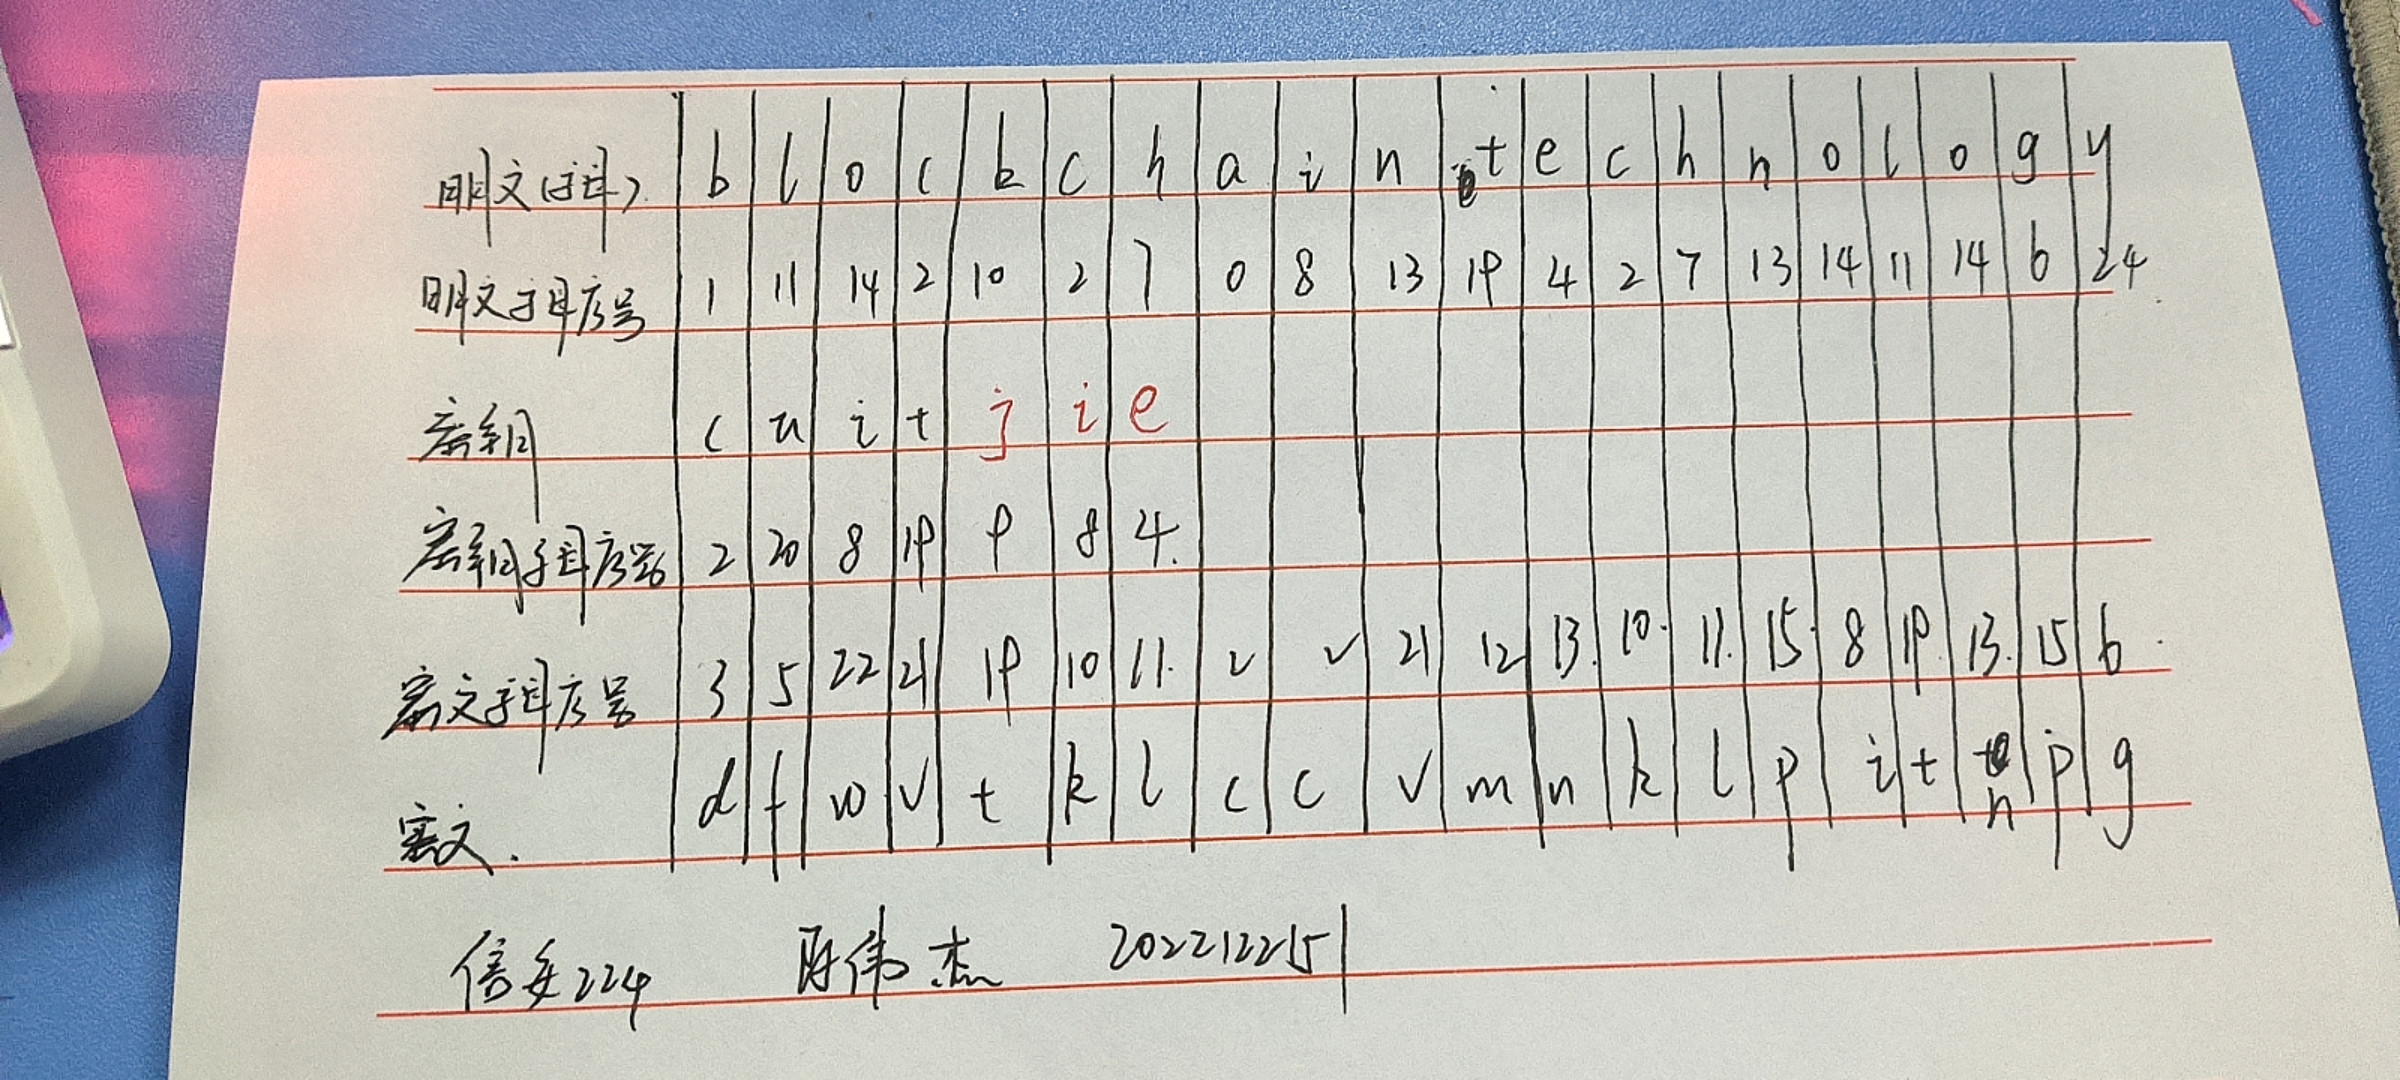 明文(字母) b l o c k c h a i n t e c h n o l o g y
明文字母序号 1 11 14 2 10 2 7 0 8 13 19 4 2 7 13 14 11 14 6 24
密钥 c u i t j i e
密钥字母序号 2 20 8 19 9 8 4
密文字母序号 3 5 22 21 19 10 11 2 2 21 12 13 10 11 15 8 19 13 15 6
密文 d f w v t k l c c v m n k l p i t n p g
信安224 伟杰 2022122151